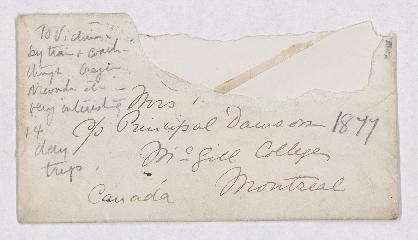 To Victoria
by train & coach
through Oregon
Nevada etc -
very interesting
14
day
trip.
Mrs
c/o Principal Dawson
1877
McGill College
Montreal
Canada